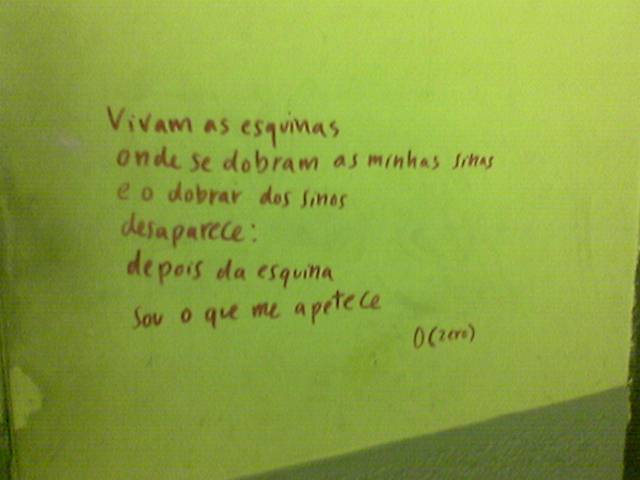 Vivam as esquinas
onde se dobram as minhas sinas
e o dobrar dos sinos
desaparece:
depois da esquina
sou o que me apetece
0 (zero)